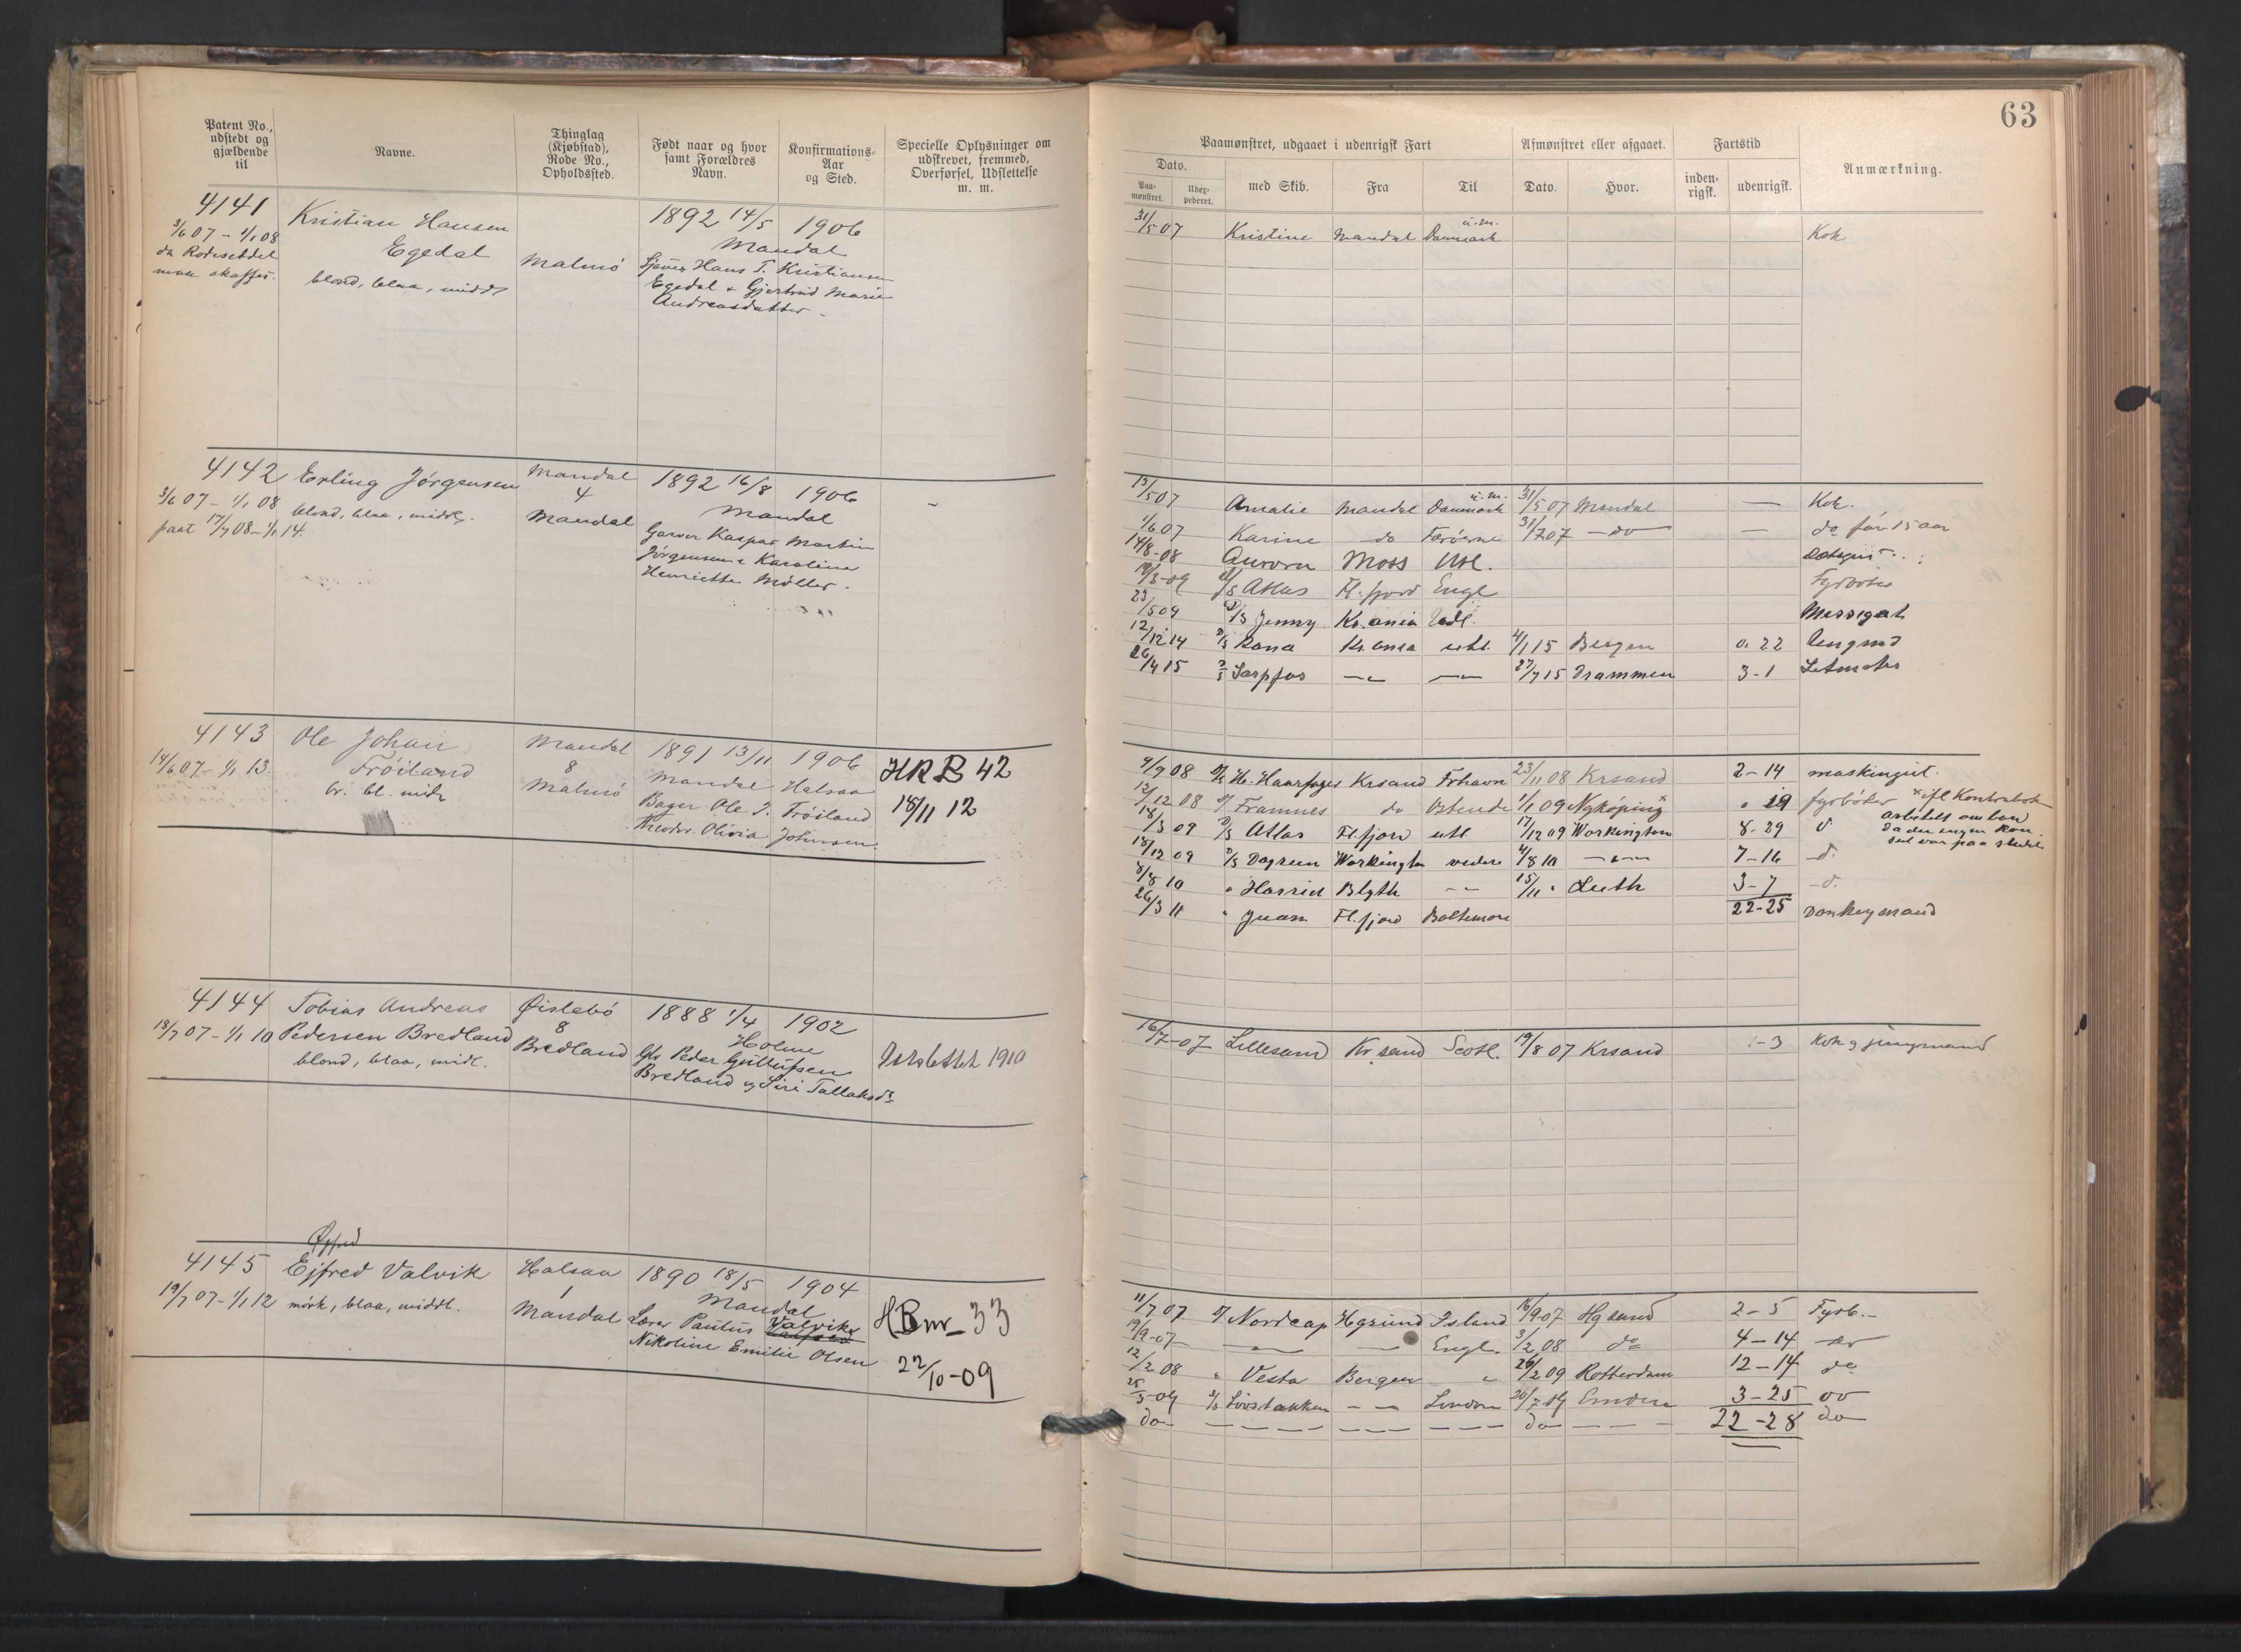 63
Patent No., udstedt og gjældende til
Navne.
Thinglag (Kjøbstad), Rode No., Opholdssted.
Født naar og hvor samt Forældres Navn.
Konfirmations-Aar og Sted.
Specielle Oplysninger om udskrevet, fremmed, Overførsel, Udslettelse m. m.
Paamønstret, udgaaet i udenrigsk Fart
Afmønstret eller afgaaet.
Fartstid
Anmærkning.
Dato.
Paa-mønstret.
med Skib.
Fra
Til
Dato.
Hvor.
inden-rigsk.
udenrigsk.
4141 Kristian Hansen 1892 14/5 1906
3/6 07 - 1/1 08 Egedal Malmö Mandal
da Rodeseddel blond, blaa, midd Sjömn Hans T. Kristiansen
maa skaffes. Egedal & Gjertrud Marie
Andreasdatter
31/5 07 Kristine Mandal Danmark Kok
4142 Erling Jörgensen Mandal 1892 16/8 1906
3/6 07 - 1/1 08 blond, blaa, middl. 4 Mandal
17/7 08 - 1/1 14. Mandal Garver Kaspar Martin
Jörgensen & Karoline
Henriette Möller.
13/5 07 Amalie Mandal Danmark 31/5 07 Mandal — Kok.
1/6 07 Karine do Færöerne 31/7 07 - do — do för 15 aar
14/8-08 Aurora Moss Utl.
Atlas Fl.fjord Engl Fyrböter
23/5 09 D/S Jenny Kr.ania Udl. Messegut
12/12 14 D/S Rana Kr.ania utl. 4/1 15 Bergen 0. 22
26/4 15 D/S Sarpfos 27/7 15 Drammen 3-1 Letmatros
4143 Ole Johan Mandal 1891 13/11 1906 HRB 42
14/6 07 - 1/1 13. Fröiland 8 Mandal Halsaa
br. bl. midd Malmö Bager Ole T. Fröiland 18/11 12
Theodor. Olivia Johnsen
9/9 08 H. Haarfager Krsand Frhavn 23/11 08 Krsand 2-14 maskingut.
12/12 08 Framnes do Ostende 1/1 09 Nyköping × " 19 fyrböter × ifl Kontrabok
18/3 09 D/S Atlas Fl.fjord utl 17/12 09 Workington 8-29 arbeidet ombord
da der ingen kon-
sul var paa stedet
18/12 09 D/S Dagrun Workington videre 4/8 10 7-16
8/8 10 " Harriet Blyth 15/11 " Leith 3-7
26/3 11 " Juan Fl.fjord Baltimore 22-25 Donkeymand
4144 Tobias Andreas Öislebö 1888 1/4 1902
18/7 07 - 1/1 10 Pedersen Bredland 8 Holme
blond, blaa, midl. Bredland Peder Gullufsen Udslettet 1910
Bredland og Siri Tallaksdr
16/7-07 Lillesand Kr.sand Scotl. 19/8 07 Krsand 1-3 Kok & jungmand
Öjfred
4145 Ejfred Valvik Halsaa 1890 18/5 1904
19/7 07 - 1/1 12 mörk, blaa, middl. 1 Mandal
Mandal Lærer Paulus Valvik HB nr 33
Nikoline Emilie Olsen
22/10-09
11/7 07 Nordcap Hgsund Island 16/9 07 Hgsund 2-5 Fyrb.
19/9-07 Engl. 3/2 08 do 4-14 do
12/2 08 " Vesta Bergen " 26/2 09 Rotterdam 12-14 do
25/3-09 D/S Lövstakken London 20/7 09 Emden 3-25 do
do do 22-28 do